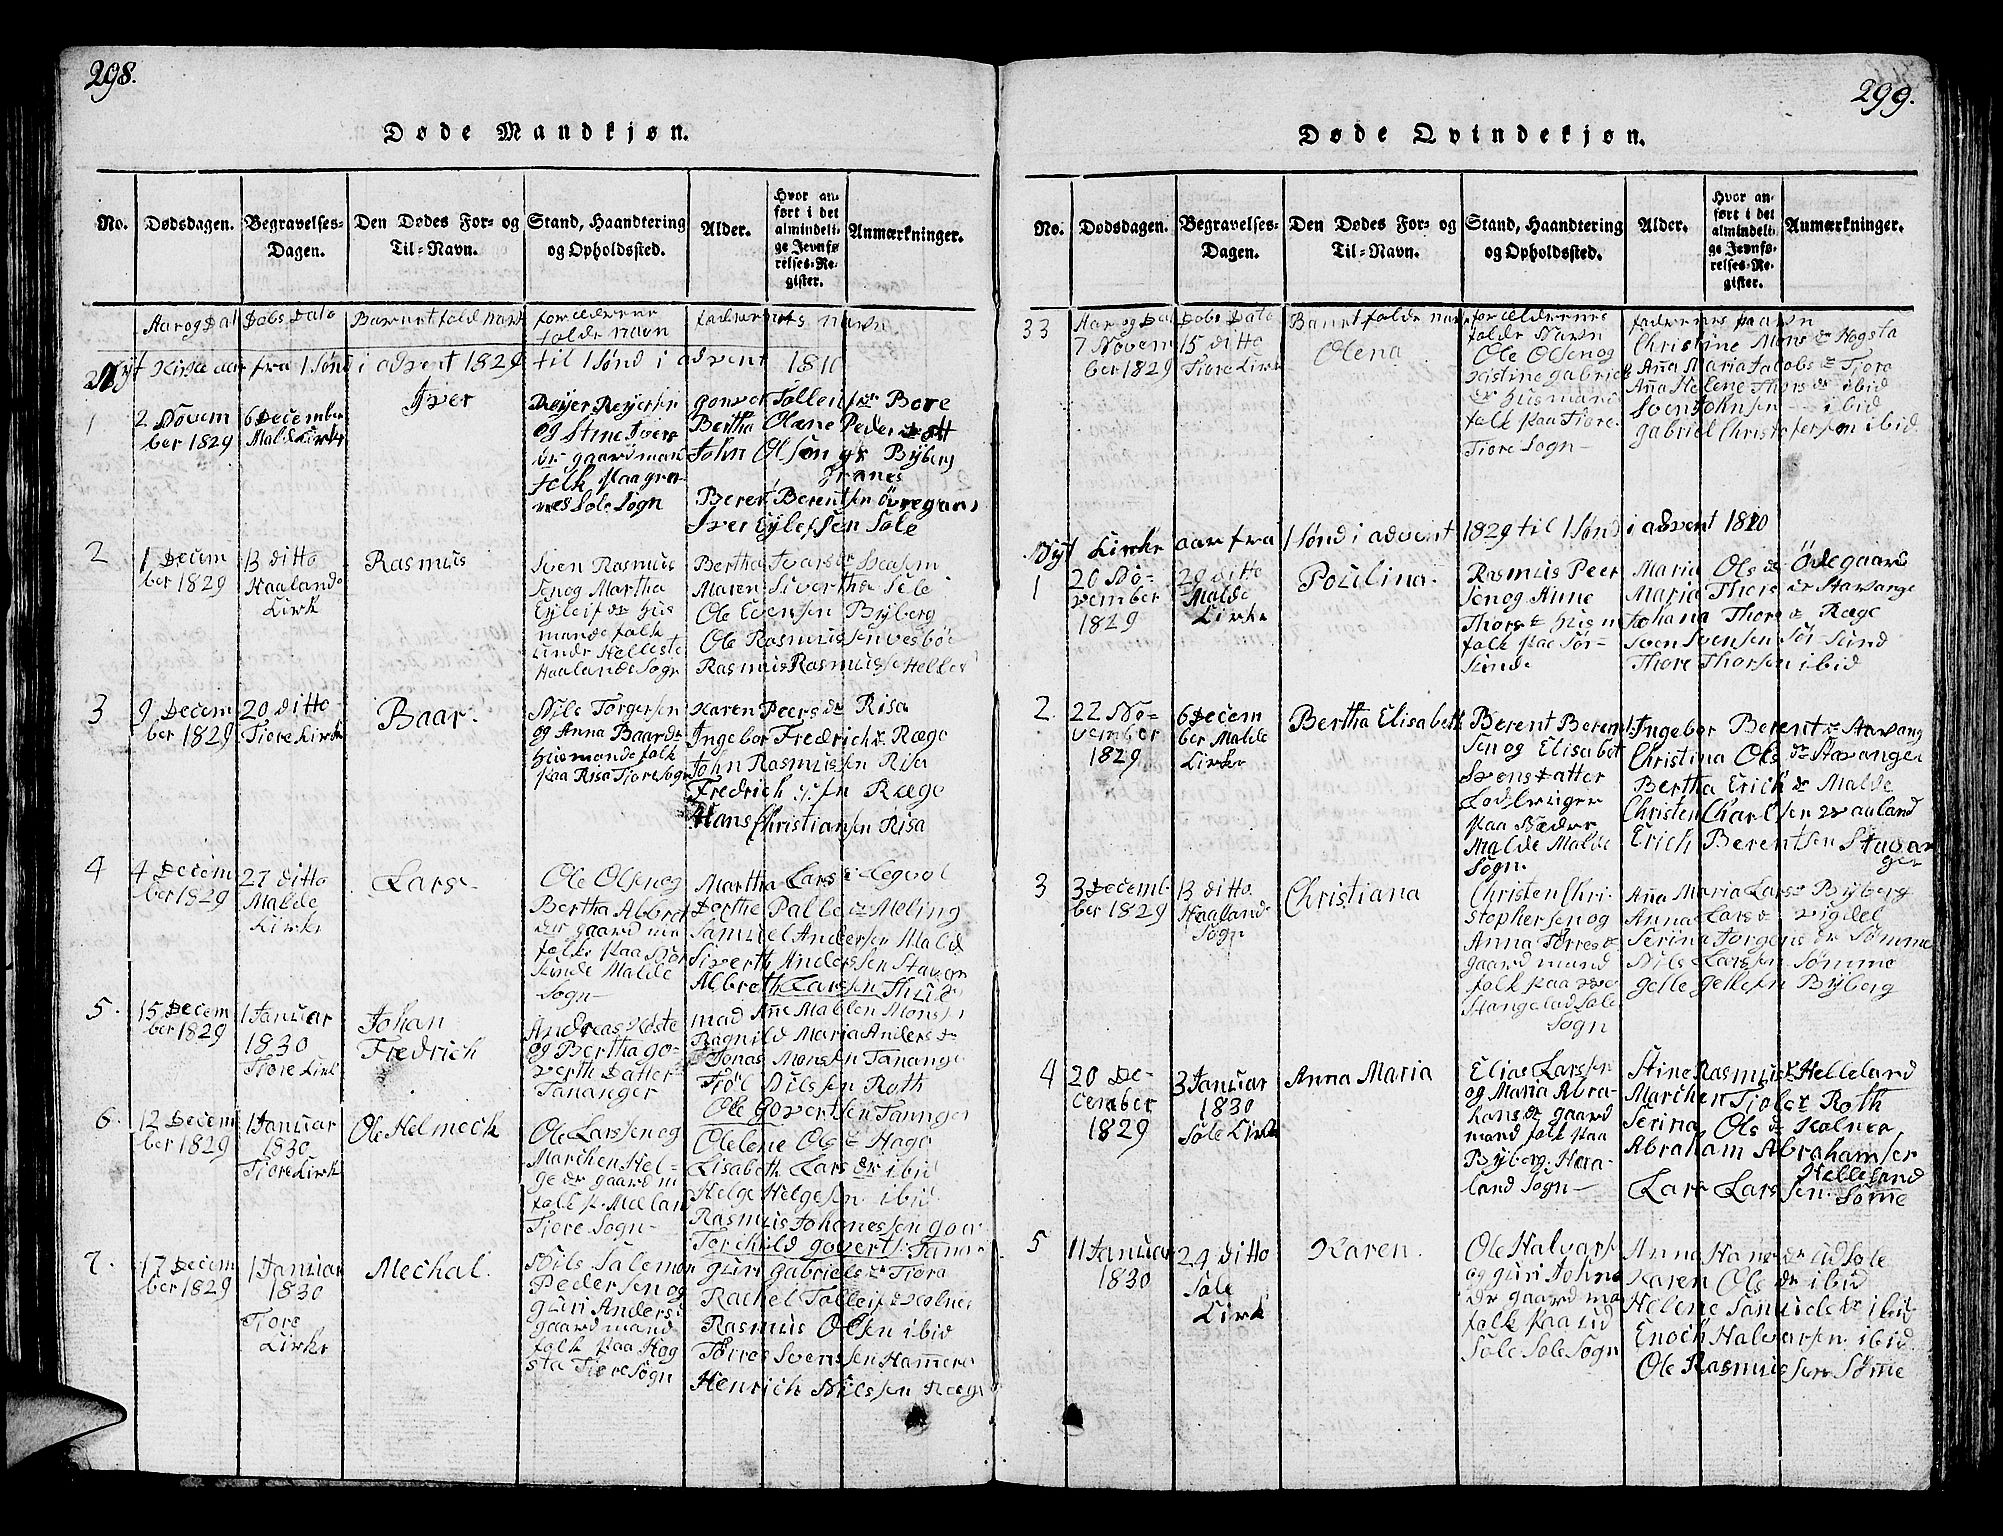 298.
Døde Mandkjøn.
No.
Dødsdagen.
Begravelses-
Dagen.
Den Dødes For- og
Til-Navn.
Stand, Haandtering
og Opholdssted.
Alder.
Hvor an-
ført i det
almindeli-
ge Jevnfø-
relses-Re-
gister.
Anmærkninger.
Aar og Dat
Dobs Dato
forældrene
folde navn
Nyt Kirke aar fra 1 Sønd i advent 1829 til 1 Sønd i advent 1810
1
2 Novem
ber 1829
6 December
Malde Kirke
Iver
Reyer Reyersn
og Stine Ivers
dr gaardmand
folk paa gra
nes Sole Sogn
Bertha Olene Peders
John Olsen gr Byberg
Granes
Beren Berentsen
Iver Eylefsen Sole
2
1 Decem
ber 1829
13 ditto
Haalands
Kirk
Rasmus
Sven Rasmus
sen og Martha
Eyleif dr Hus
mande folk
Hellesto
Haalands Sogn
Bertha Ivars dr
Maren Siverths Sele
Ole Evensen Byberg
Ole Rasmussen
Rasmus Rasmussen Helles
3
9 Decem
ber 1829
20 ditto
Tiore Kirke
Baar.
Nils Torgersen
og Anna Baards
Husmande folk
paa Risa Tiore Sogn
Karen Peers dr Risa
Ingebor Fredrich Ræge
John Rasmussen Risa
Fredrich Ræge
Hans Christiansen Risa
4
4 Decem
ber 1829
27 ditto
Malde
Kirke
Lars
Ole Olsen og
Bertha Albret
dr gaard m
folk paa Sør
Sunde Malde
Sogn
Martha Lars
Dorthe Palle dr Meling
Samuel Andersen Mald
Siverth Andersen Stavan
Albreth Larsen
5.
15 Decem
ber 1829
1 Januar
1830
Tiore Kirk
Johan
Fredrich
Andreas Koste
og Bertha go-
verth Datter
Tananger
mad Ane Mallen Monsen
Ragnild Maria Anders dr
Jonas Monsen Tanange
Tiøl Nilssen Roth
Ole Govertsen Tannger
6.
12 Decem
ber 1829
1 Januar
1830
Tiore Kirk
Ole Helmeck
Ole Larssen og
Marchen Hel-
ge dr gaard m
folk p. Mælan
Tiore Sogn
Olelene Ols dr Hage
Elisabeth Lars dr ibid
Helge Helgesen ibid
Rasmus Johanessen
Torchild govertsen
7.
17 Decem
ber 1829
1 Januar
1830
Tiore
Kirke
Mechal.
Nils Salemon
Pedersen og
guri Anders
gaard mand
folk paa Hog
sta Tiore Sogn
guri gabriels dr Tiora
Rachel Tolleif dr Kolnes
Rasmus Olsen ibid
Torres Svensen Hamere
Henrich Nilssen Ræge
299.
Døde Qvindekjøn.
No.
Dødsdagen.
Begravelses-
Dagen.
Den Dødes For- og
Til-Navn.
Stand, Haandtering
og Opholdssted.
Alder.
Hvor an-
ført i det
almindeli-
ge Jevnfø-
relses-Re-
gister.
Anmærkninger.
33
Aar og Dat
7 Novem
ber 1829
Dobs Dato
15 ditto
Tiore Kirk
Olena
forældrenes
folde Navn
Ole Olsen og
Kistine gabriels
dr Husmans
folk paa Tiore
Tiore Sogn
Christine Mons dr Hogsta
Ana Maria Jacobs dr Tiora
Ana Helene Thors dr ibid
Sven Johnsen ibid
gabriel Christofersen ibid
Nyt Kirke aar fra 1 Sønd i advent 1829 til 1 Sønd i advent 1810
1
20 No-
vember
1829
29 ditto
Malde
Kirke
Poulina.
Rasmus Peer
sen og Anne
Thors dr Husm
folk paa Sør-
Sunde
Maria Ols dr Ødegaard
Maria Thors dr Stavange
Johana Thore dr Ræge
Sven Svensen Sør Sund
Thore Thorsen ibid
2
22 No-
vember
1829
6 Decem
ber Malde
Kirke
Bertha Elisabeth
Berent Berent
sen og Elisabet
Svensdatter
paa
Malde Malde
Sogn
Ingebor Berent dr Stavang
Christina Ols dr Stavanger
Bertha Erich dr Malde
Christen Charlsen
Erich Berentsen Stavan
ger
3
3 Decemb
ber 1829
13 ditto
Haaland
Sogn
Christiana
Christen Chri-
stophersen og
Anna Torres dr
gaard mand
folk paa
Stangeland Sole
Sogn
Ana Maria Lars dr Byberg
Anna Lars dr Vigdel
Serina Torgens dr Sømme
Nils Larssen Sømme
gelle gellesen Byberg
4
20 De-
cember
1829
3 Januar
1830
Sole Kirke
Anna Maria
Elias Larssen
og Maria Abra-
hans dr gaard
mand folk paa
Byberg Haa-
land Sogn
Stine Rasmus dr Helleland
Marchen Tiols dr Roth
Serina Ols dr Kolnes
Abraham Abrahamsen
Helleland
Lars Larssen Sømme
5
11 Januar
1830
24 ditto
Sole
Kirk
Karen.
Ole Halvars
og guri Johns
dr gaard ma
folk paa ud
Sole Sole Sogn
Anna Hans dr ud Sole
Karen Ols dr ibid
Helene Samuels dr ibid
Enoch Halversen ibid
Ole Rasmussen Sømme